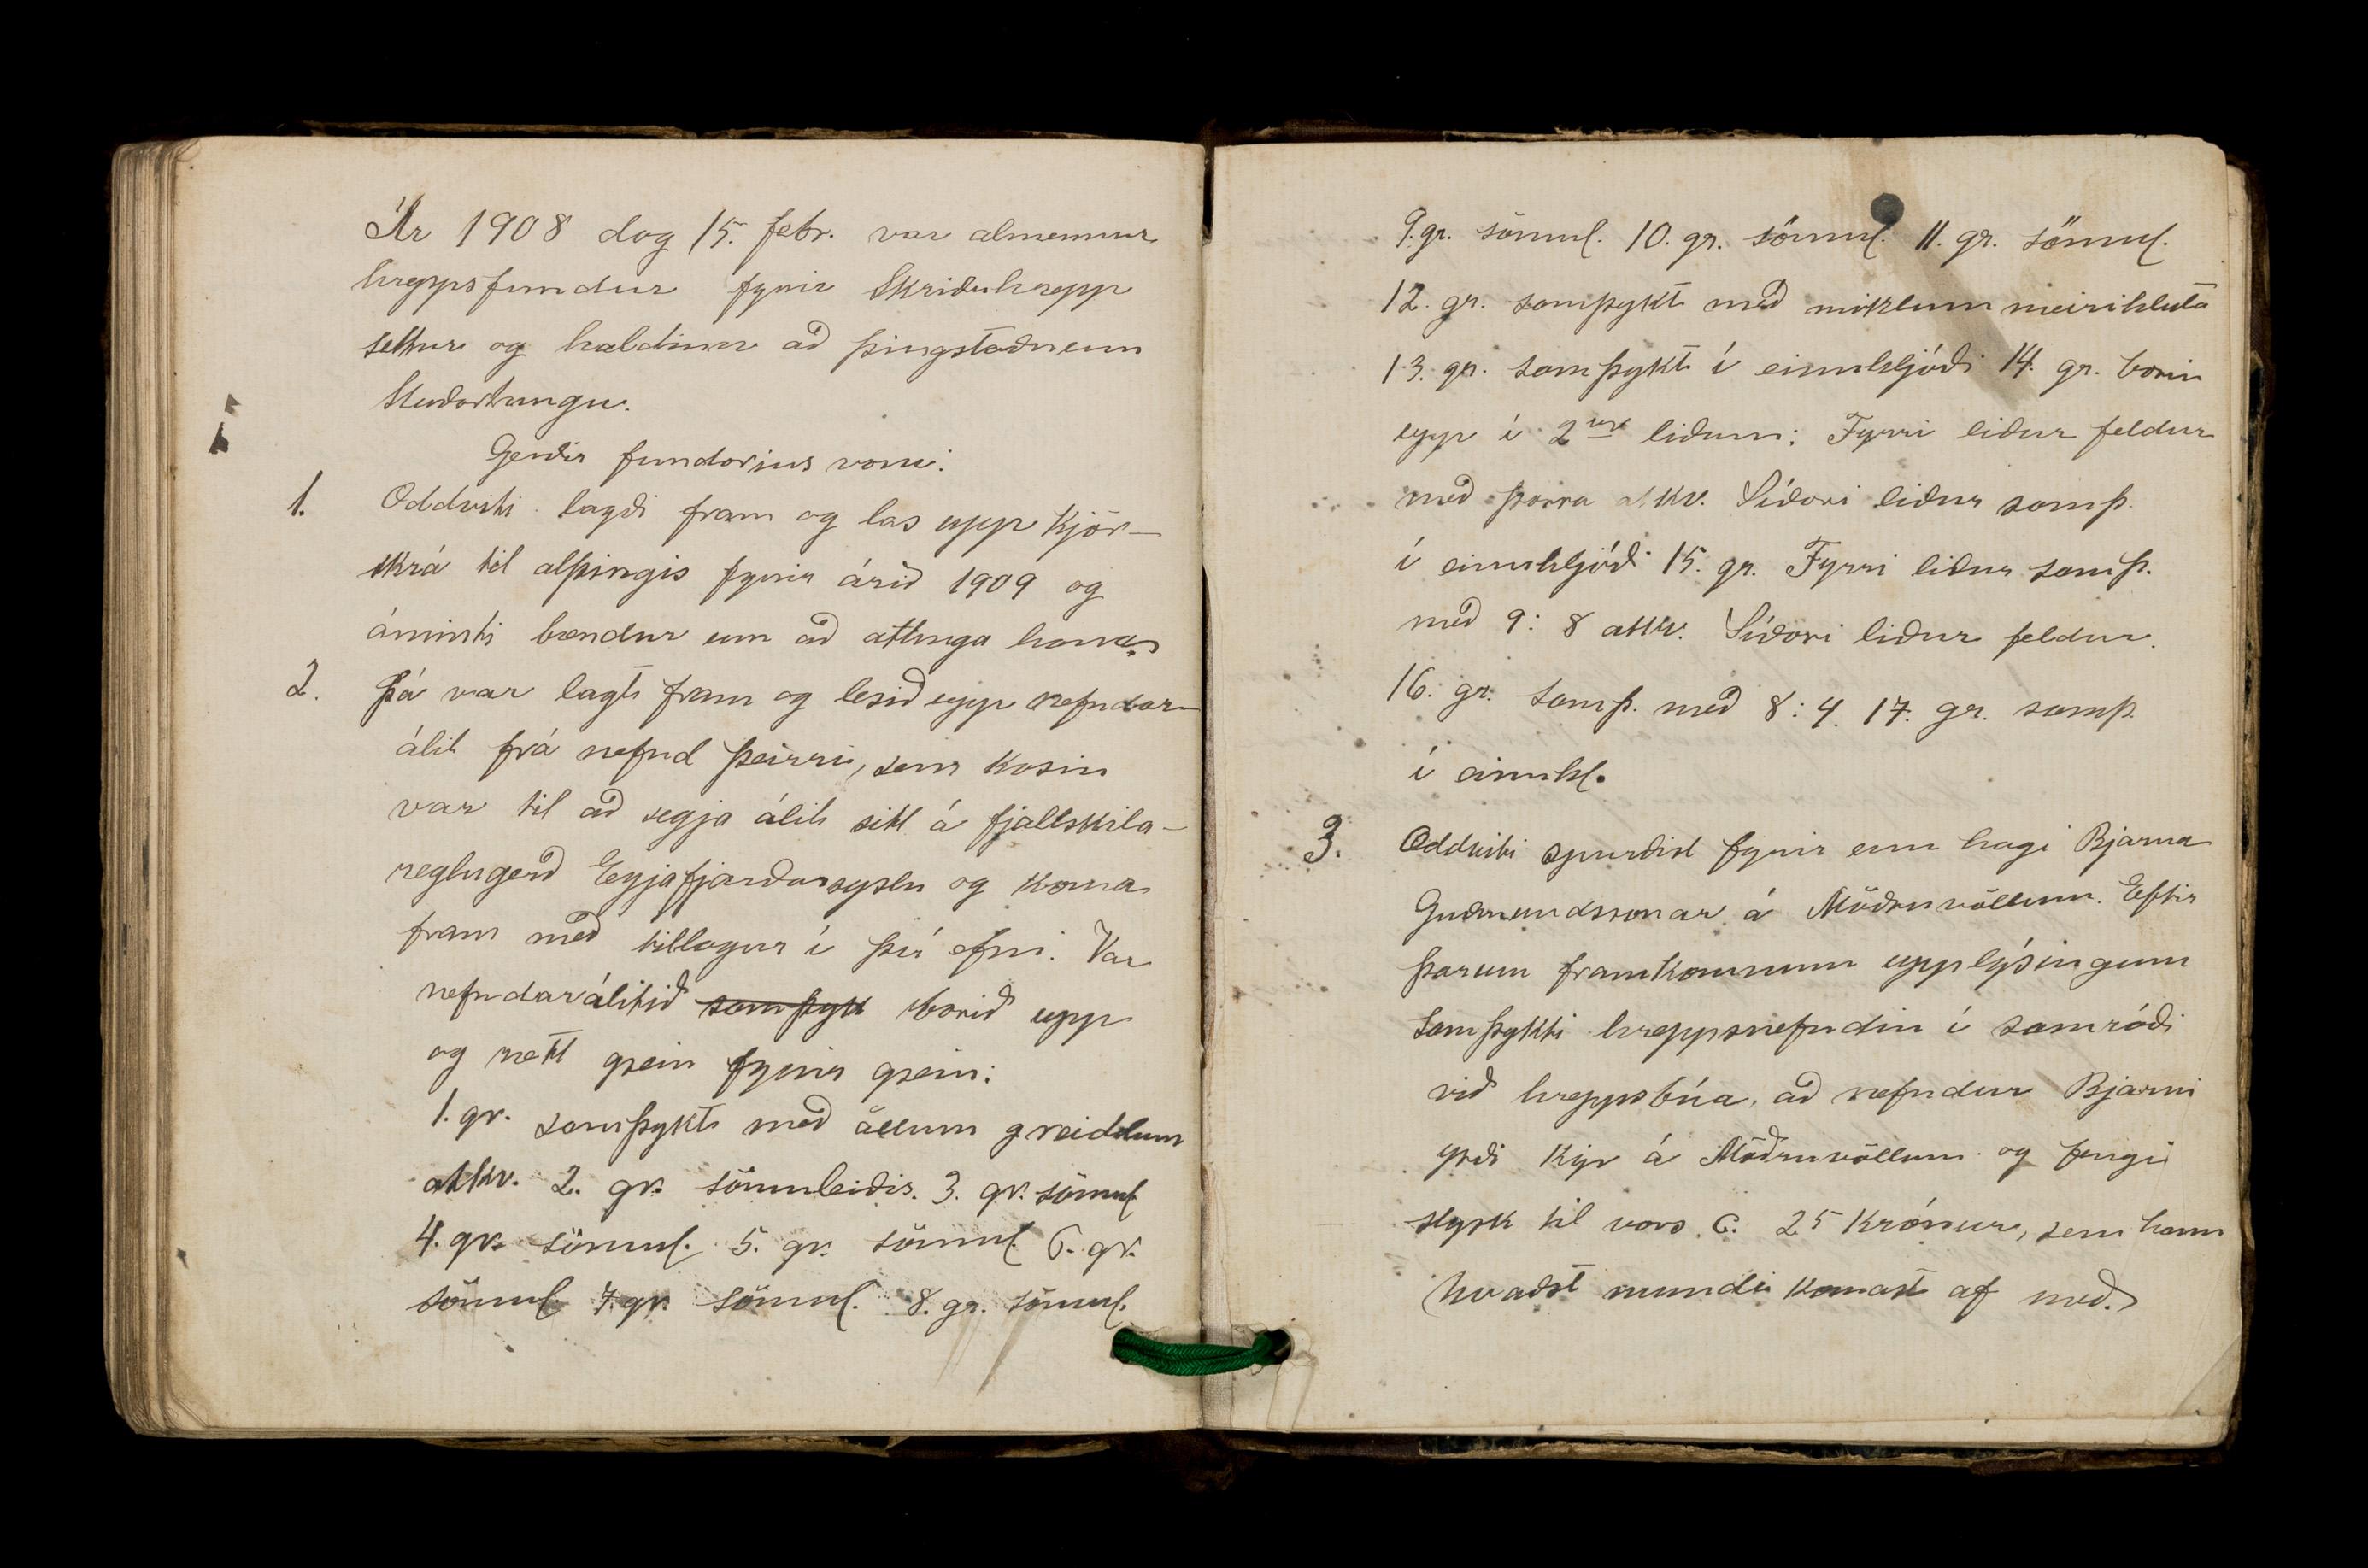 Ár 1908 dag 15. febr. var almennur
hreppsfundur fyrir Skriðuhrepp
settur og haldinn að þingstaðnum
Staðartungu.
Gerðir fundarins voru:
1. Oddviti lagði fram og las upp kjör-
skrá til alþingis fyrir árið 1909 og
áminti bændur um að athuga hana.
2. Þá var lagt fram og lesið upp nefndar-
álit frá nefnd þeirri, sem kosin
var til að segja álit sitt á fjallskila-
reglugerð Eyjafjarðarsýslu og koma
fram með tillögur í því efni. Var
nefndarálitið samþykt borið upp
og rætt grein fyrir grein:
1. gr. samþykt með öllum greiddum
atkv. 2. gr. sömuleiðis. 3. gr. sömul.
4. gr. sömul. 5. gr. sömul. 6. gr.
sömul. 7. gr. sömul. 8. gr. sömul.
9. gr. sömul. 10. gr. sömul. 11. gr. sömul.
12. gr. samþykt með miklum meirihluta
13. gr. samþykt í einuhljóði 14. gr. borin
upp í 2ur liðum: Fyrri liður feldur
með þorra atkv. Síðari liður samþ.
í einuhljóði 15. gr. Fyrri liður samþ.
með 9: 8 atkv. Síðari liður feldur.
16. gr. samþ. með 8: 4. 17. gr. samþ.
í einuhl.
3. Oddviti spurðist fyrir um hagi Bjarna
Guðmundssonar á Möðruvöllum. Eftir
þarum framkomnum upplýsingum
samþykti hreppsnefndin í samráði
við hreppsbúa, að nefndur Bjarni
yrði kyr á Möðruvöllum og fengi
styrk til vors c. 25 krónur, sem hann
kvaðst mundi komast af með.